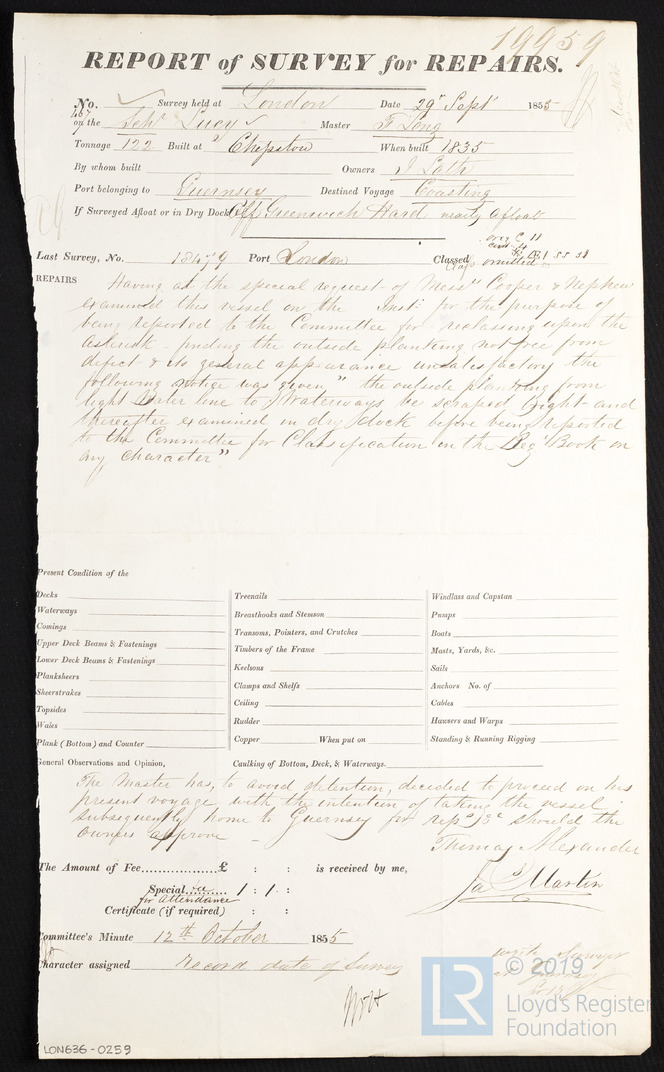 19959
REPORT of SURVEY for REPAIRS.
No. Survey held at London Date 29th Sept 1855
on the Schr Lucy Master T Long
Tonnage 122 Built at Chepstow When built 1835
By whom built Owners
Port belonging to Guernsey Destined Voyage Coasting
If Surveyed Afloat or in Dry Dock Off Greenwich Hard nearly afloat
Last Survey, No. Port London Classed
omitted
REPAIRS Having at the special request of Messrs Cooper & Nephew
examined this vessel on the Inst. for the purpose of
being reported to the Committee for reclassing upon the
asterisk - finding the outside planking not free from
defect & its general appearance unsatisfactory the
following notice was given " the outside planking from
light Water line to Waterways be scraped bright and
thereafter examined in dry dock before being reported
to the Committee for Classification in the Reg Book on
any character"
Present Condition of the
Decks Treenails Windlass and Capstan
Waterways Breasthooks and Stemson Pumps
Comings Transoms, Pointers, and Crutches Boats
Upper Deck Beams & Fastenings Timbers of the Frame Masts, Yards, &c.
Lower Deck Beams & Fastenings Keelsons Sails
Planksheers Clamps and Shelfs Anchors No. of
Sheerstrakes Ceiling Cables
Topsides Rudder Hawsers and Warps
Wales Copper When put on Standing & Running Rigging
Plank (Bottom) and Counter
General Observations and Opinion, Caulking of Bottom, Deck, & Waterways.
The Master has, to avoid detention, decided to proceed on his
present voyage with the intention of taking the vessel
subsequently home to Guernsey for repairs should the
owners approve
Thomas Alexander
The Amount of Fee..................£ : : is received by me,
Special......... 1 : 1 : Martin
for attendance
Certificate (if required) : :
Committee's Minute 12th October 1855
Character assigned Record date of Survey
LR © 2019
Lloyd's Register
Foundation
LON636-0259